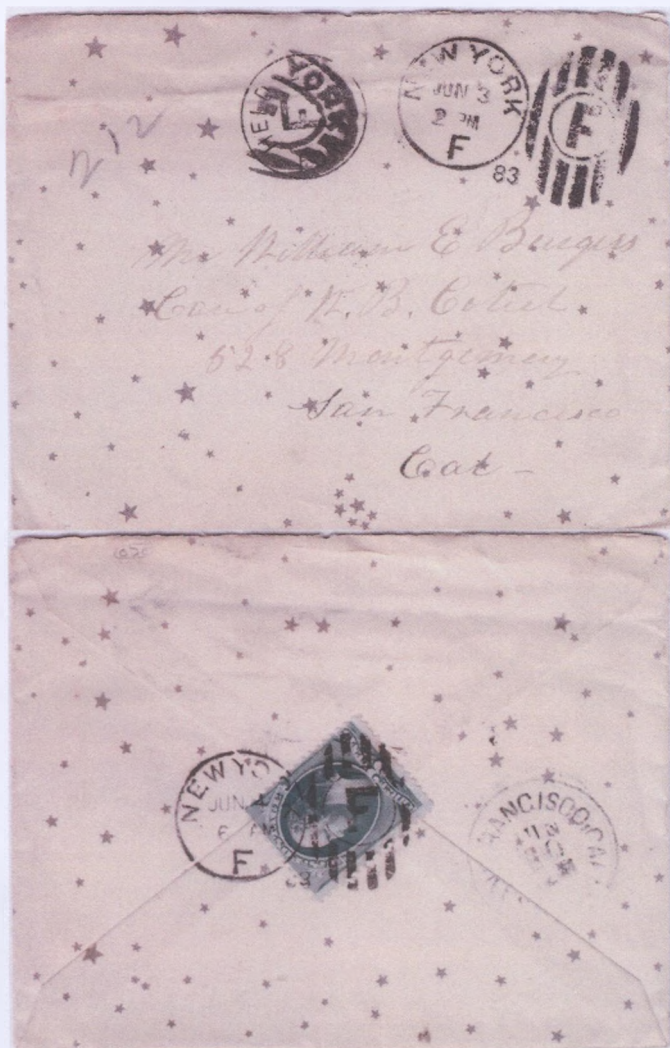 212
NEW YORK
F
NEW YORK
JUN 3
2 PM
F
83
F
Mr William E Burgess
Care of
528 Montgomery
San Francisco
Cal -
NEW YO
JUN
6
F
83
F
RANCISCO, CAL